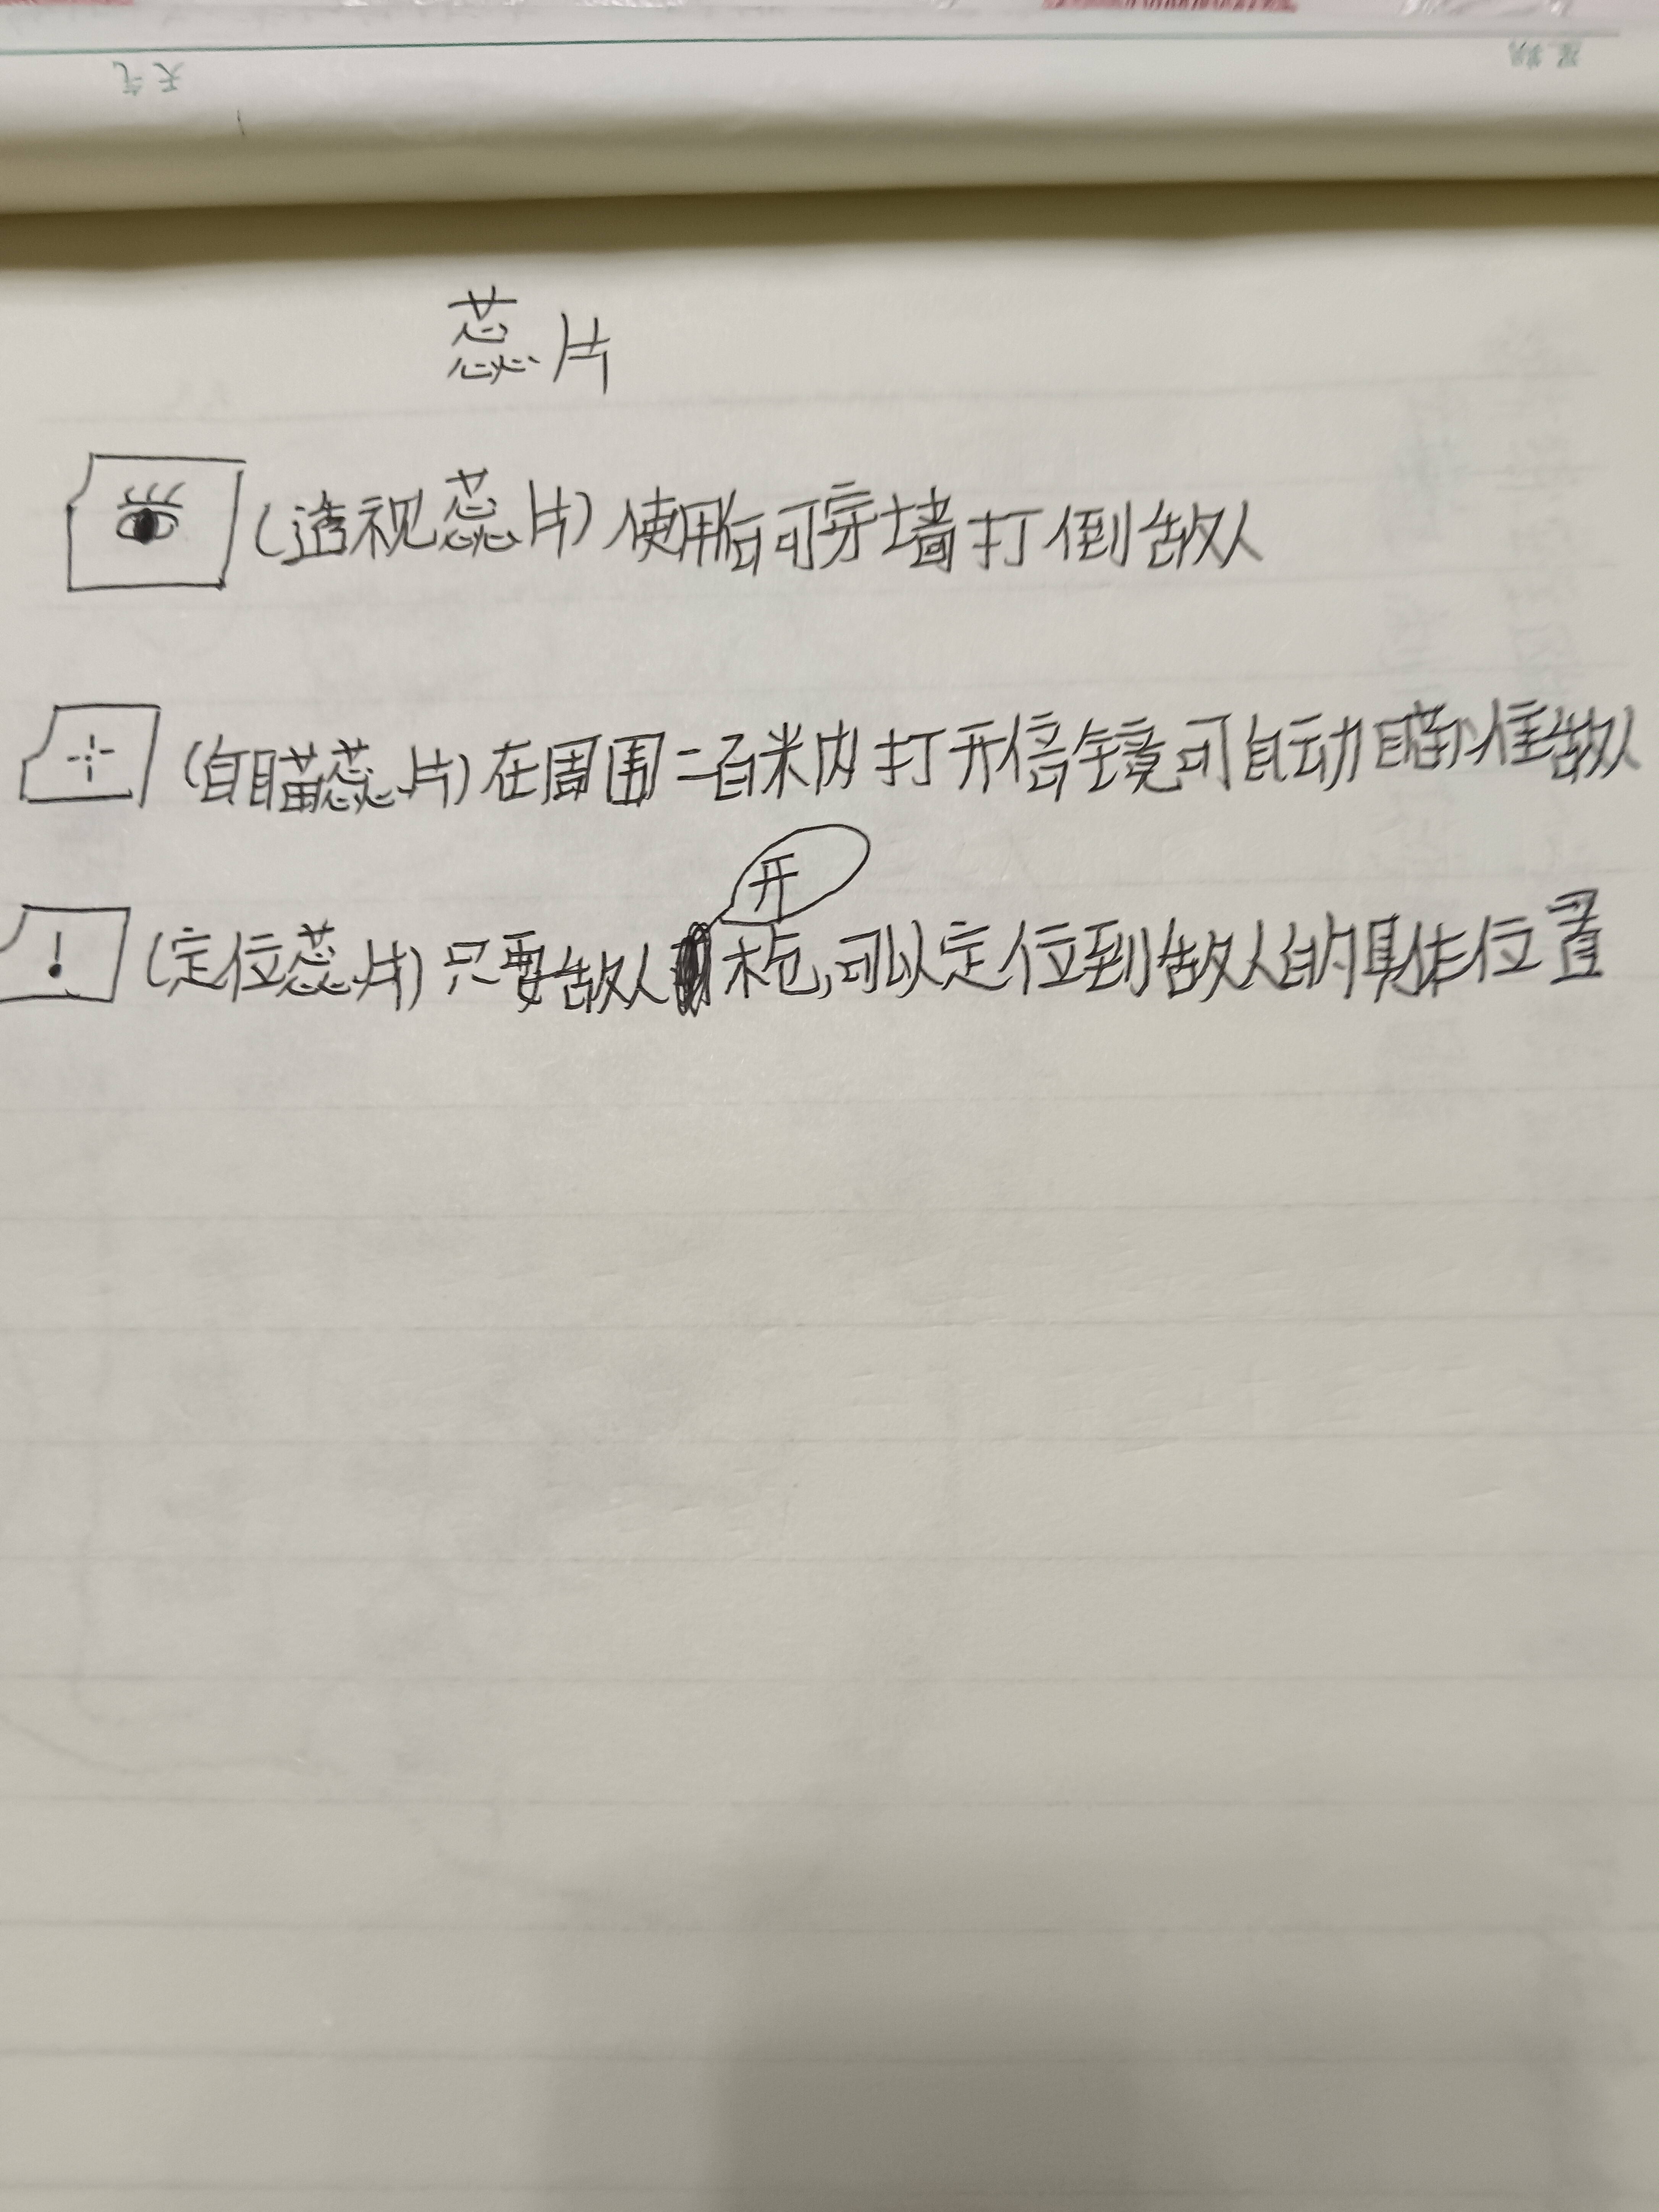 天气 星期
蕊片
(透视蕊片)使用后可穿墙打倒敌人
(自瞄蕊片)在周围二百米内打开倍镜可自动瞄准敌人
开
(定位蕊片)只要敌人枪,可以定位到敌人的具体位置